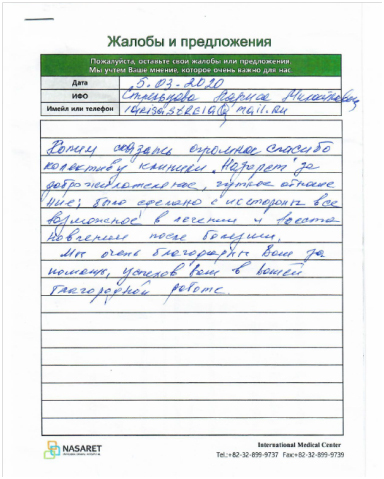 Жалобы и предложения
Пожалуйста, оставьте свои жалобы или предложения.
Мы учтем Ваше мнение, которое очень важно для нас.
Дата 5.03.2020
ИФО Стрелкова Лариса
Имейл или телефон mail.ru
Хотим сказать огромное спасибо
коллективу клиники „Назарет" за
доброжелательное, чуткое отноше
ние; было сделано с их стороны все
возможное в лечении и восста
новлении после болезни.
Мы очень благодарны Вам за
помощь, успехов вам в вашей
благородной работе.
NASARET
International Medical Center
Tel.:+82-32-899-9737 Fax:+82-32-899-9739